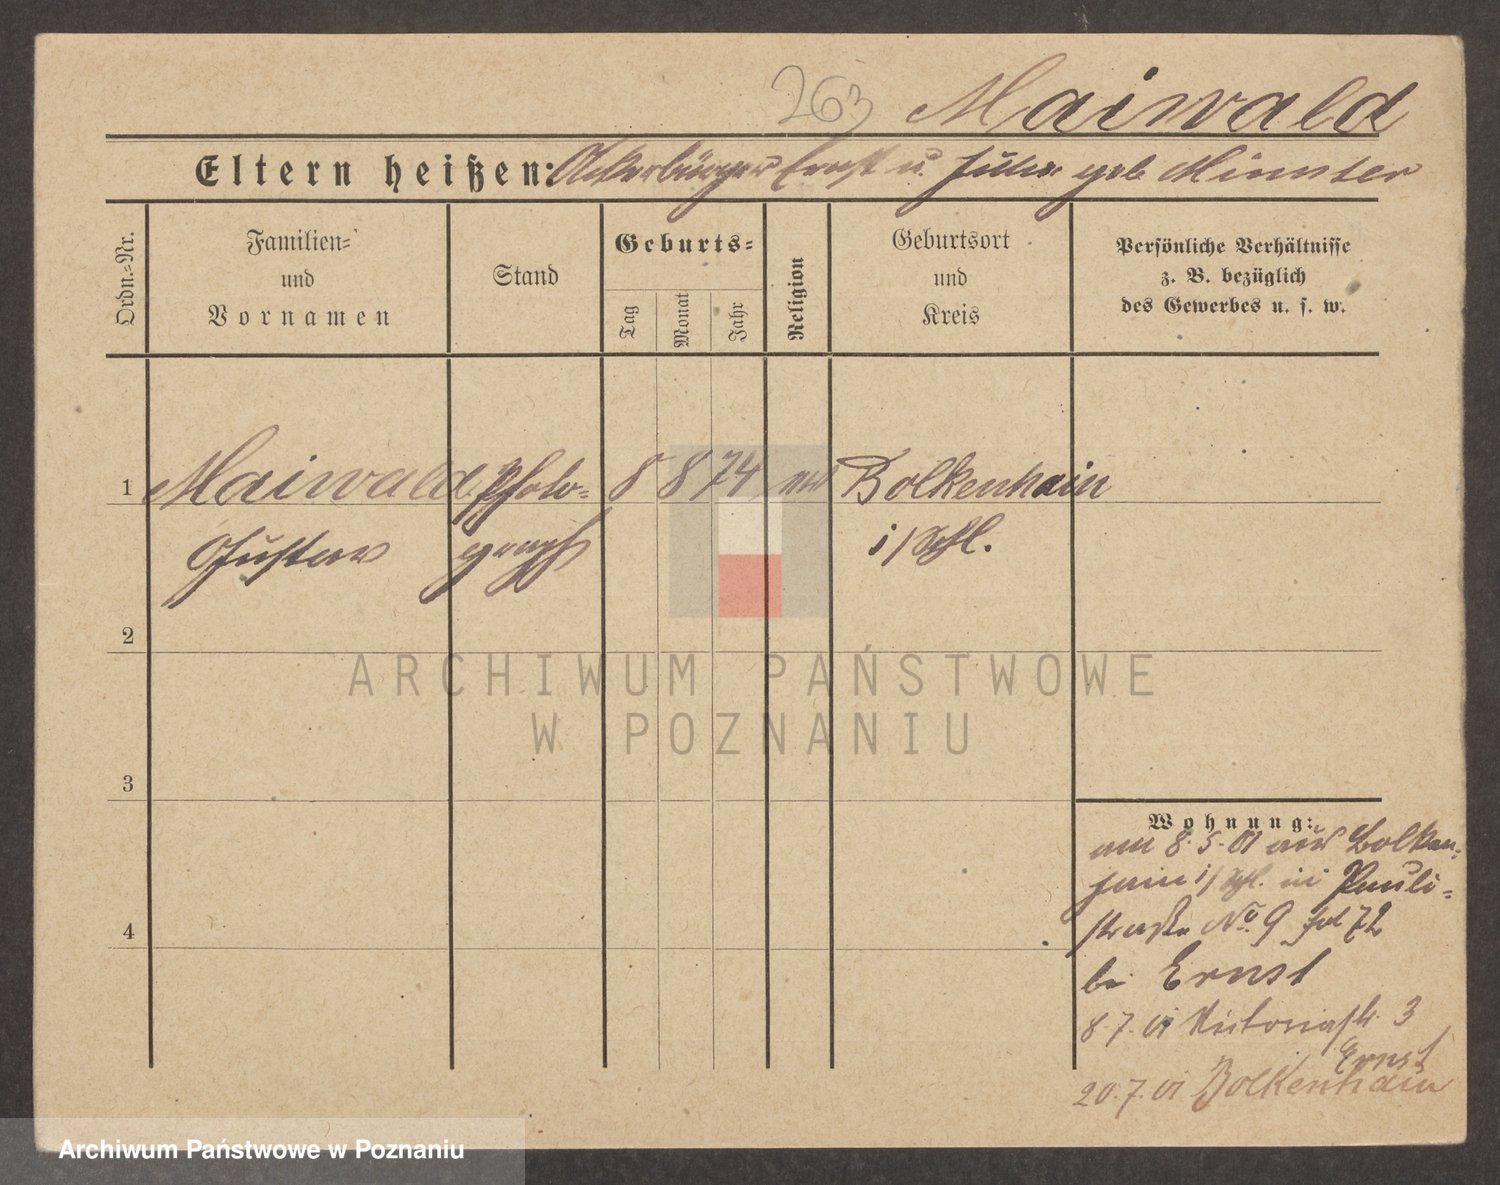 263 Maiwald
Eltern heißen: Ackerbürger Ernst u. geb Minster
Ordn.-Nr.
Familien-
und
Vornamen
Stand
Geburts-
Tag
Monat
Jahr
Religion
Geburtsort
und
Kreis
Persönliche Verhältnisse
z. B. bezüglich
des Gewerbes u. s. w.
1 Maiwald Photo- 8 8 74 Bolkenhain
Gustav graph i/Schl.
2
3
4
Wohnung:
am 8.5.01 aus Bolken-
hain i/Schl. in Pauli-
straße No 9 72
bei Ernst
8.7.01 Victoriastr. 3
Ernst
20.7.01 Bolkenhain
ARCHIWUM PAŃSTWOWE
W POZNANIU
Archiwum Państwowe w Poznaniu